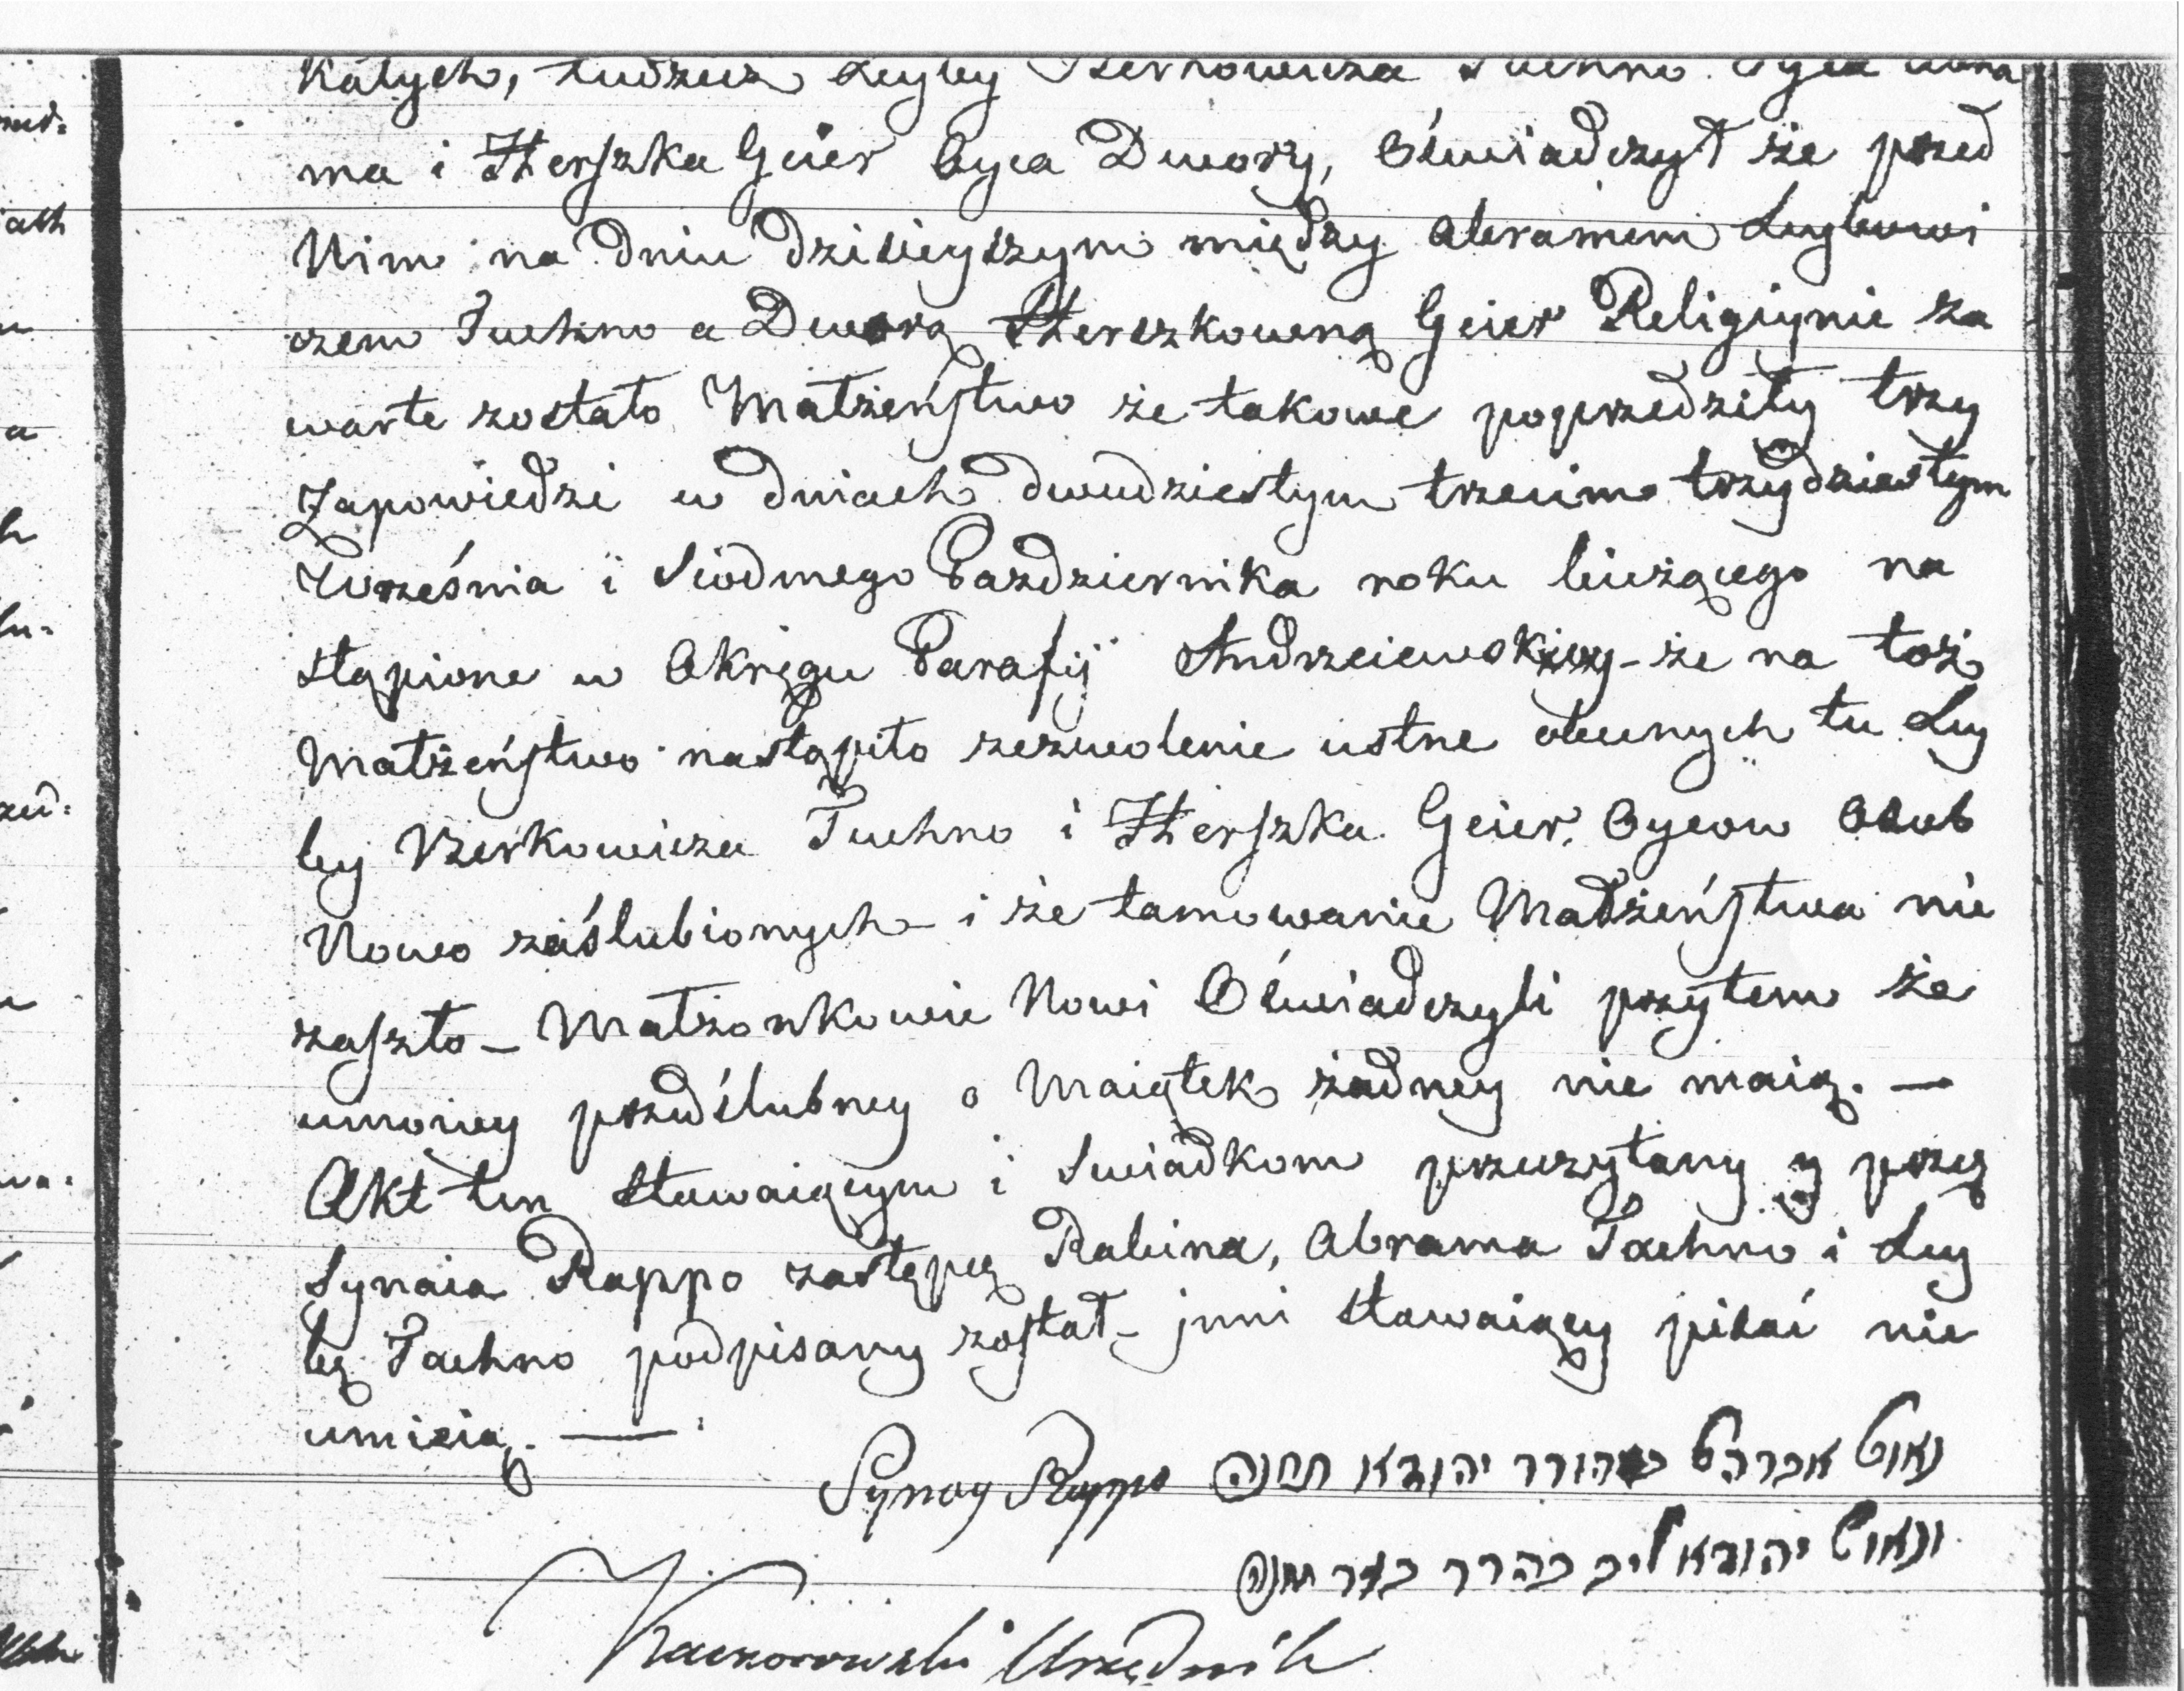 kałych, tudzież Leyby Berkowicza Tuchno Oyca Abra
ma i Herszka Geier Oyca Dwory, Oświadczył że przed
Nim na dniu dzisieyszym między Abramem Leybowi
czem Tuchno a Dworą Herszkowną Geier Religiynie za
warte zostało Małżeństwo że takowe poprzedziły trzy
Zapowiedzi w dniach dwudziestym trzecim trzydziestym
Września i Siódmego Pazdziernika roku bieżącego na
stąpione w Okręgu Parafij Andrzeiewskiey – że na toż
Małżeństwo nastąpiło zezwolenie ustne obecnych tu Ley
by Berkowicza Tuchno i Herszka Geier, Oyców Osób
Nowo zaślubionych – i że tamowanie Małżeństwa nie
zaszło – Małżonkowie Nowi Oświadczyli przytem że
umowy przedślubney o Maiątek żadney nie maią. —
Akt ten Stawaiącym i Swiadkom przeczytany y przez
Synaia Rappo zastępcę Rabina, Abrama Tachno i Ley
bę Tachno podpisany został – inni Stawaiący pisać nie
umieią. —
Synay Rappo נאום אברהם יהודא
ונאום יהודא ליב
Kaczorowski Urzędnik